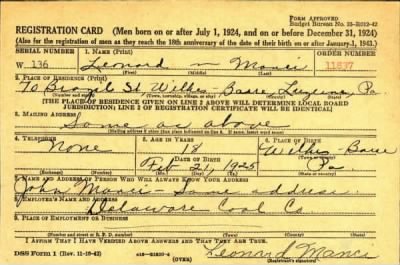 FORM APPROVED
Budget Bureau No. 33-R012-42
REGISTRATION CARD (Men born on or after July 1, 1924, and on or before December 31, 1924)
(Also for the registration of men as they reach the 18th anniversary of the date of their birth on or after January 1, 1943.)
SERIAL NUMBER 1. NAME (Print) ORDER NUMBER
W 136 Leonard Manci 11837
2. PLACE OF RESIDENCE (Print)
70 Brazil St Wilkes-Barre Luzerne Pa
[THE PLACE OF RESIDENCE GIVEN ON LINE 2 ABOVE WILL DETERMINE LOCAL BOARD
JURISDICTION; LINE 2 OF REGISTRATION CERTIFICATE WILL BE IDENTICAL]
3. MAILING ADDRESS
Same as above
4. TELEPHONE 5. AGE IN YEARS 6. PLACE OF BIRTH
None 18 Wilkes-Barre
DATE OF BIRTH
Feb 21, 1925 Pa.
7. NAME AND ADDRESS OF PERSON WHO WILL ALWAYS KNOW YOUR ADDRESS
John Manci - Same address
8. EMPLOYER'S NAME AND ADDRESS
Delaware Coal Co
9. PLACE OF EMPLOYMENT OR BUSINESS
I AFFIRM THAT I HAVE VERIFIED ABOVE ANSWERS AND THAT THEY ARE TRUE.
DSS Form 1 (Rev. 11-16-42) (OVER) Leonard Manci
(Registrant's signature)